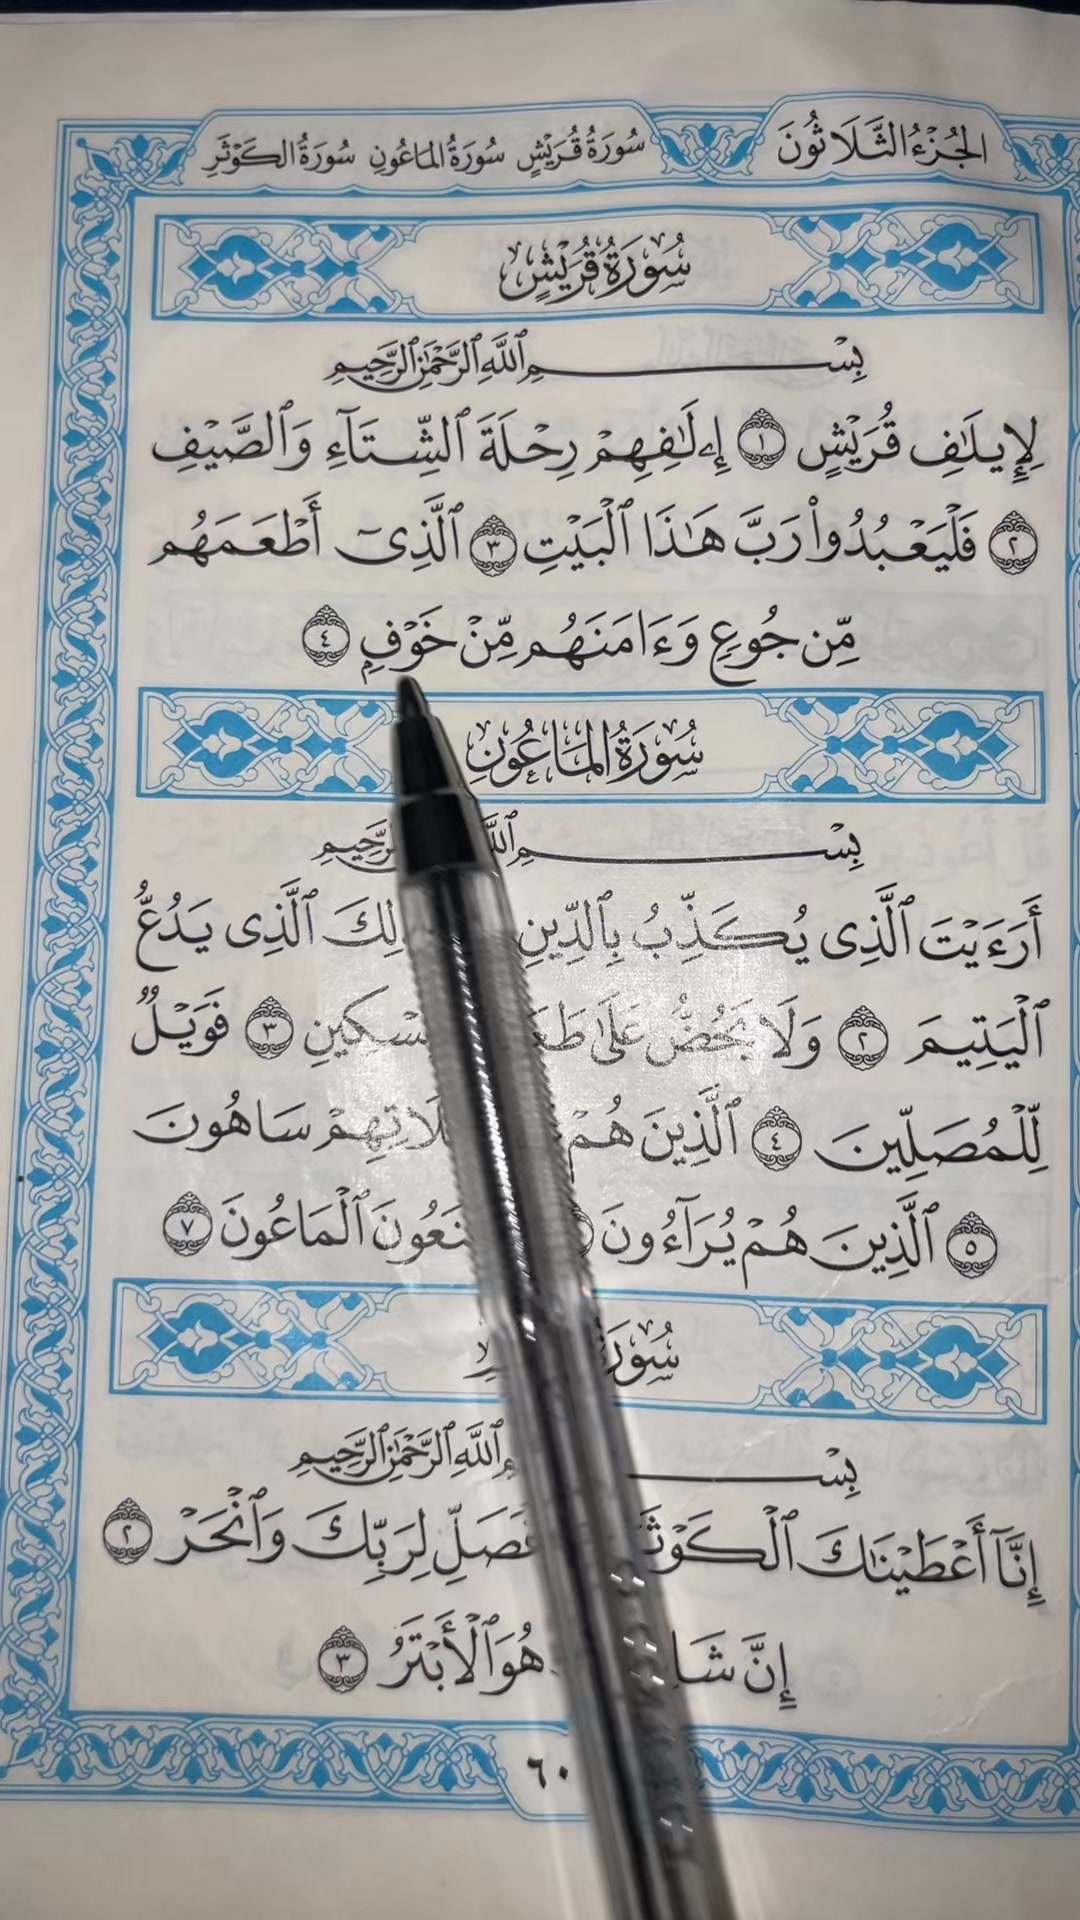 الجُزْءُ الثَّلَاثُونَ سُورَةُ قُرَيْشٍ سُورَةُ المَاعُونِ سُورَةُ الكَوْثَرِ
سُورَةُ قُرَيْشٍ
بِسْمِ ٱللَّهِ ٱلرَّحْمَٰنِ ٱلرَّحِيمِ
لِإِيلَٰفِ قُرَيْشٍ ١ إِۦلَٰفِهِمْ رِحْلَةَ ٱلشِّتَآءِ وَٱلصَّيْفِ
٢ فَلْيَعْبُدُوا۟ رَبَّ هَٰذَا ٱلْبَيْتِ ٣ ٱلَّذِىٓ أَطْعَمَهُم
مِّن جُوعٍ وَءَامَنَهُم مِّنْ خَوْفٍ ٤
سُورَةُ المَاعُونِ
بِسْمِ ٱللَّهِ ٱلرَّحِيمِ
أَرَءَيْتَ ٱلَّذِى يُكَذِّبُ بِٱلدِّينِ ٱلَّذِى يَدُعُّ
ٱلْيَتِيمَ ٢ وَلَا يَحُضُّ عَلَىٰ ٣ فَوَيْلٌ
لِّلْمُصَلِّينَ ٤ ٱلَّذِينَ هُمْ سَاهُونَ
٥ ٱلَّذِينَ هُمْ يُرَآءُونَ ٱلْمَاعُونَ ٧
بِسْمِ ٱللَّهِ ٱلرَّحْمَٰنِ ٱلرَّحِيمِ
إِنَّآ أَعْطَيْنَٰكَ ٱلْكَوْثَرَ فَصَلِّ لِرَبِّكَ وَٱنْحَرْ ٢
إِنَّ هُوَ ٱلْأَبْتَرُ ٣